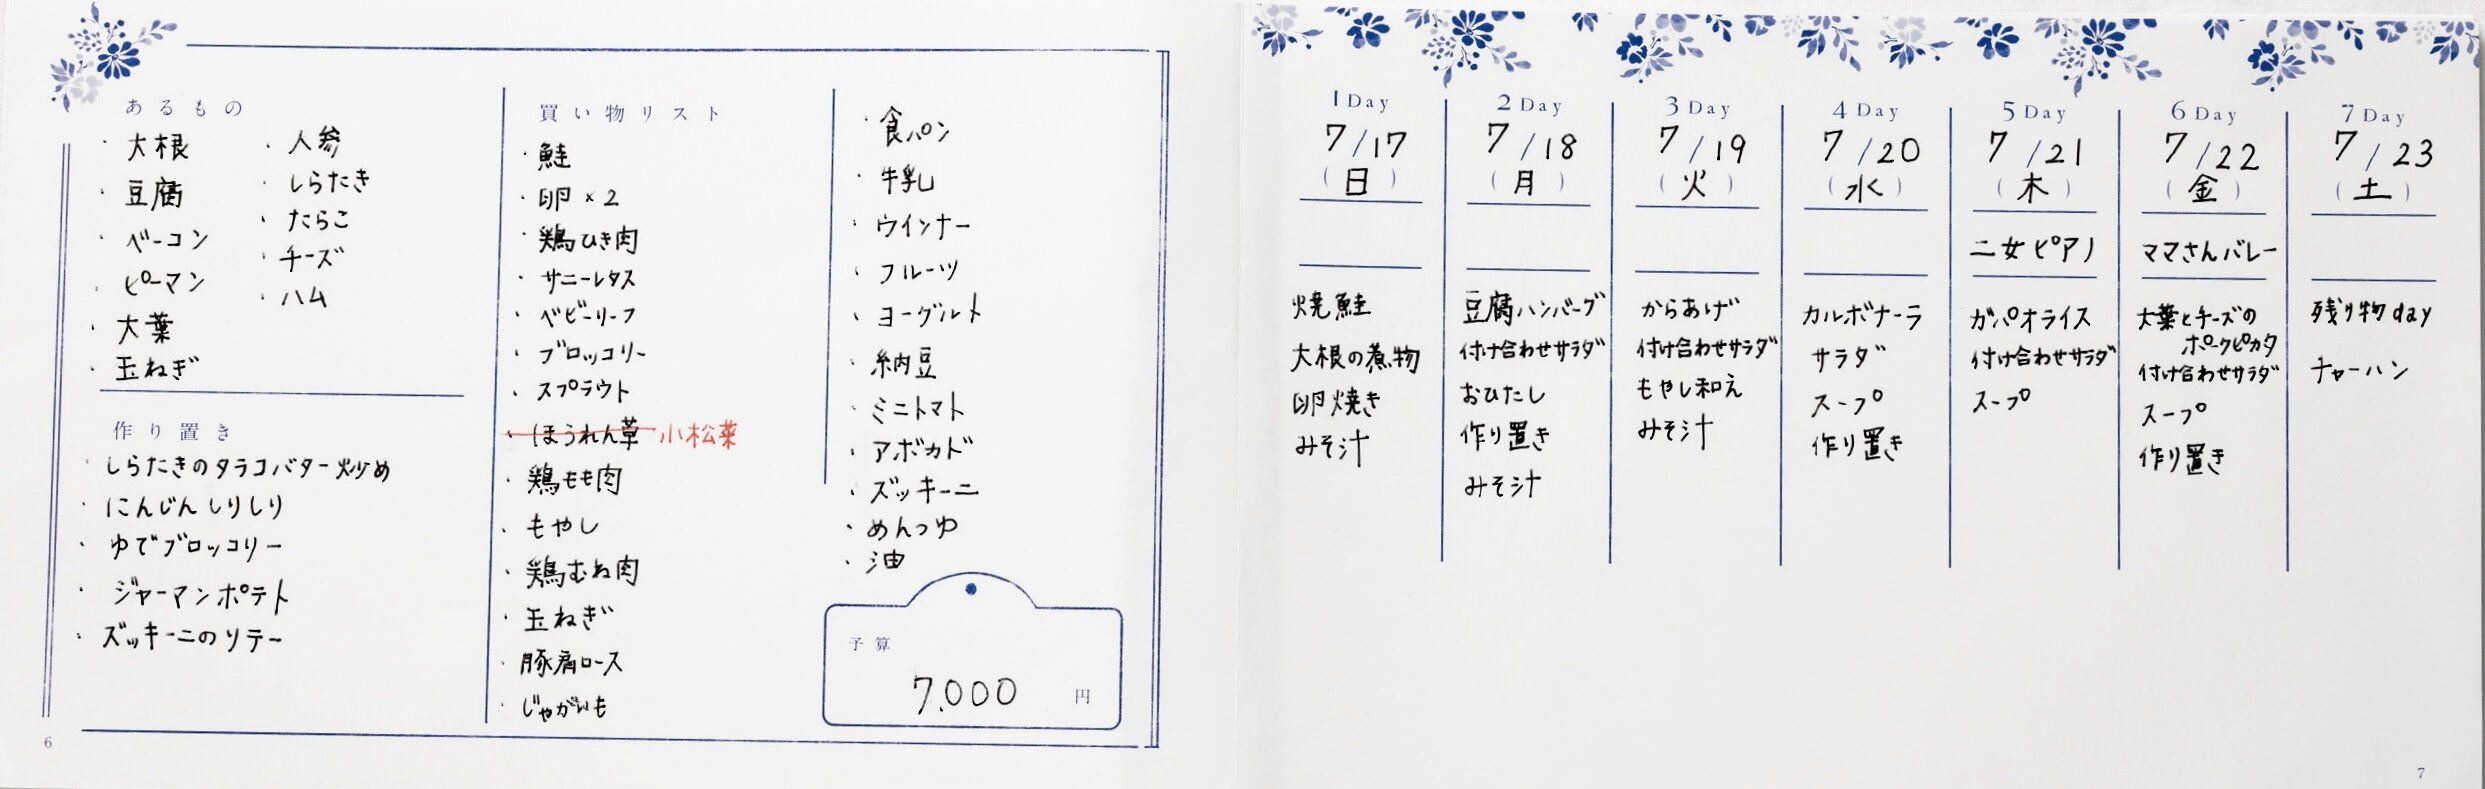 あるもの
・大根
・豆腐
・ベーコン
・ピーマン
・大葉
・玉ねぎ
・人参
・しらたき
・たらこ
・チーズ
・ハム
作り置き
・しらたきのタラコバター炒め
・にんじんしりしり
・ゆでブロッコリー
・ジャーマンポテト
・ズッキーニのソテー
買い物リスト
・鮭
・卵×2
・鶏ひき肉
・サニーレタス
・ベビーリーフ
・ブロッコリー
・スプラウト
・ほうれん草 小松菜
・鶏もも肉
・もやし
・鶏むね肉
・玉ねぎ
・豚肩ロース
・じゃがいも
・食パン
・牛乳
・ウインナー
・フルーツ
・ヨーグルト
・納豆
・ミニトマト
・アボカド
・ズッキーニ
・めんつゆ
・油
予算
7,000 円
6
1 Day
7/17
(日)
焼鮭
大根の煮物
卵焼き
みそ汁
2 Day
7/18
(月)
豆腐ハンバーグ
付け合わせサラダ
おひたし
作り置き
みそ汁
3 Day
7/19
(火)
からあげ
付け合わせサラダ
もやし和え
みそ汁
4 Day
7/20
(水)
カルボナーラ
サラダ
スープ
作り置き
5 Day
7/21
(木)
二女ピアノ
ガパオライス
付け合わせサラダ
スープ
6 Day
7/22
(金)
ママさんバレー
大葉とチーズの
ポークピカタ
付け合わせサラダ
スープ
作り置き
7 Day
7/23
(土)
残り物day
チャーハン
7